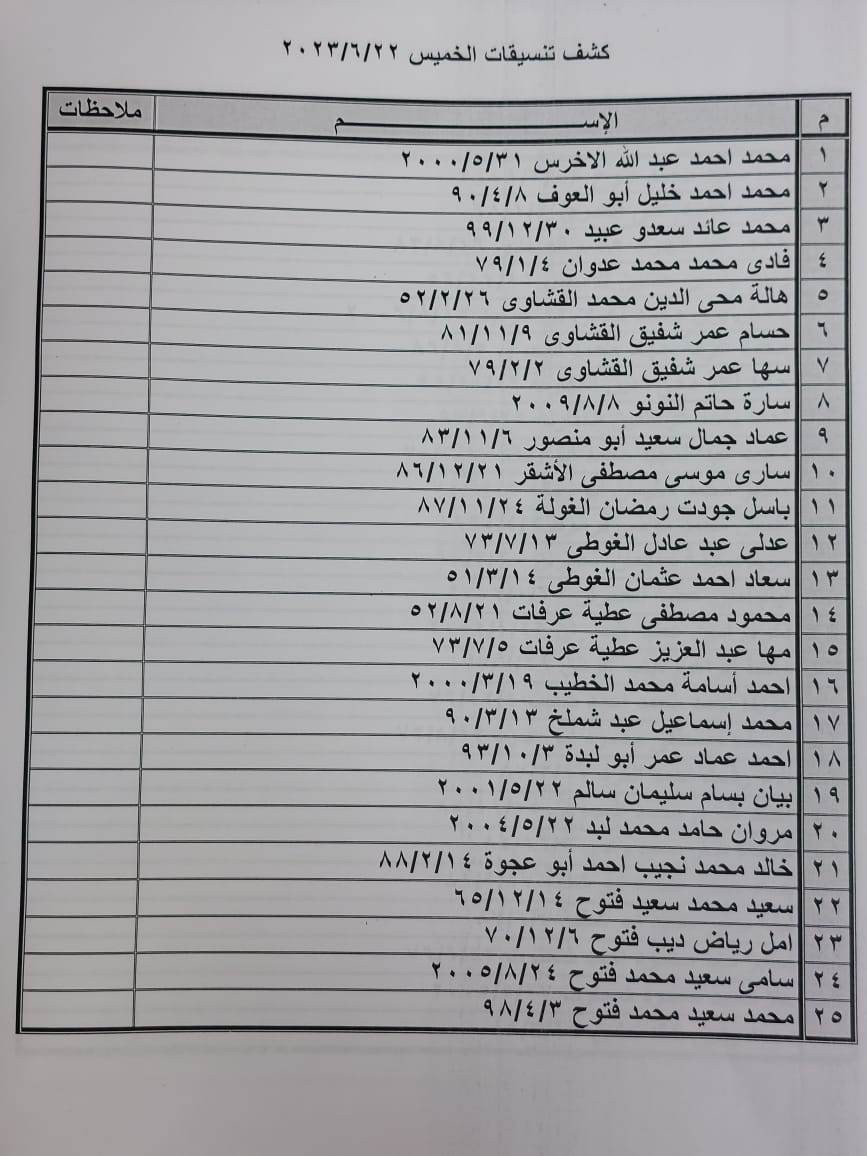 كشف تنسيقات الخميس ٢٠٢٣/٦/٢٢
م الإســـــــــم ملاحظات
١ محمد احمد عبد الله الاخرس ٢٠٠٠/٥/٣١
٢ محمد احمد خليل أبو العوف ٩٠/٤/٨
٣ محمد عائد سعدو عبيد ٩٩/١٢/٣٠
٤ فادى محمد محمد عدوان ٧٩/١/٤
٥ هالة محى الدين محمد القشاوى ٥٢/٢/٢٦
٦ حسام عمر شفيق القشاوى ٨١/١١/٩
٧ سها عمر شفيق القشاوى ٧٩/٢/٢
٨ سارة حاتم النونو ٢٠٠٩/٨/٨
٩ عماد جمال سعيد أبو منصور ٨٣/١١/٦
١٠ سارى موسى مصطفى الأشقر ٨٦/١٢/٢١
١١ باسل جودت رمضان الغولة ٨٧/١١/٢٤
١٢ عدلى عبد عادل الغوطى ٧٣/٧/١٣
١٣ سعاد احمد عثمان الغوطى ٥١/٣/١٤
١٤ محمود مصطفى عطية عرفات ٥٢/٨/٢١
١٥ مها عبد العزيز عطية عرفات ٧٣/٧/٥
١٦ احمد أسامة محمد الخطيب ٢٠٠٠/٣/١٩
١٧ محمد إسماعيل عبد شملخ ٩٠/٣/١٣
١٨ احمد عماد عمر أبو لبدة ٩٣/١٠/٣
١٩ بيان بسام سليمان سالم ٢٠٠١/٥/٢٢
٢٠ مروان حامد محمد لبد ٢٠٠٤/٥/٢٢
٢١ خالد محمد نجيب احمد أبو عجوة ٨٨/٢/١٤
٢٢ سعيد محمد سعيد فتوح ٦٥/١٢/١٤
٢٣ امل رياض ديب فتوح ٧٠/١٢/٦
٢٤ سامى سعيد محمد فتوح ٢٠٠٥/٨/٢٤
٢٥ محمد سعيد محمد فتوح ٩٨/٤/٣